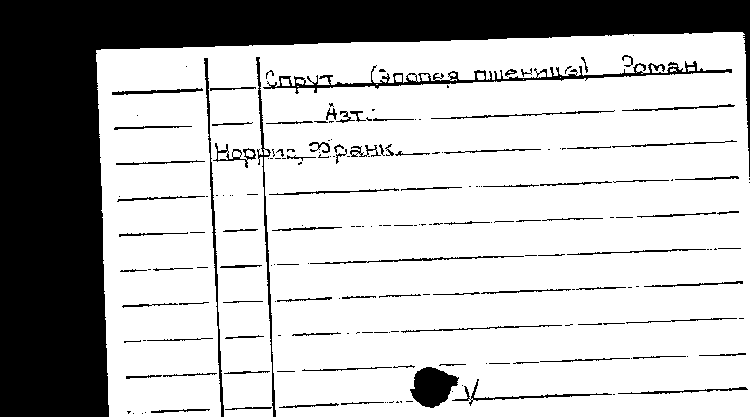 Спрут. (Эпопея пшеницы) Роман.
Авт.:
Норрис, Франк.
V